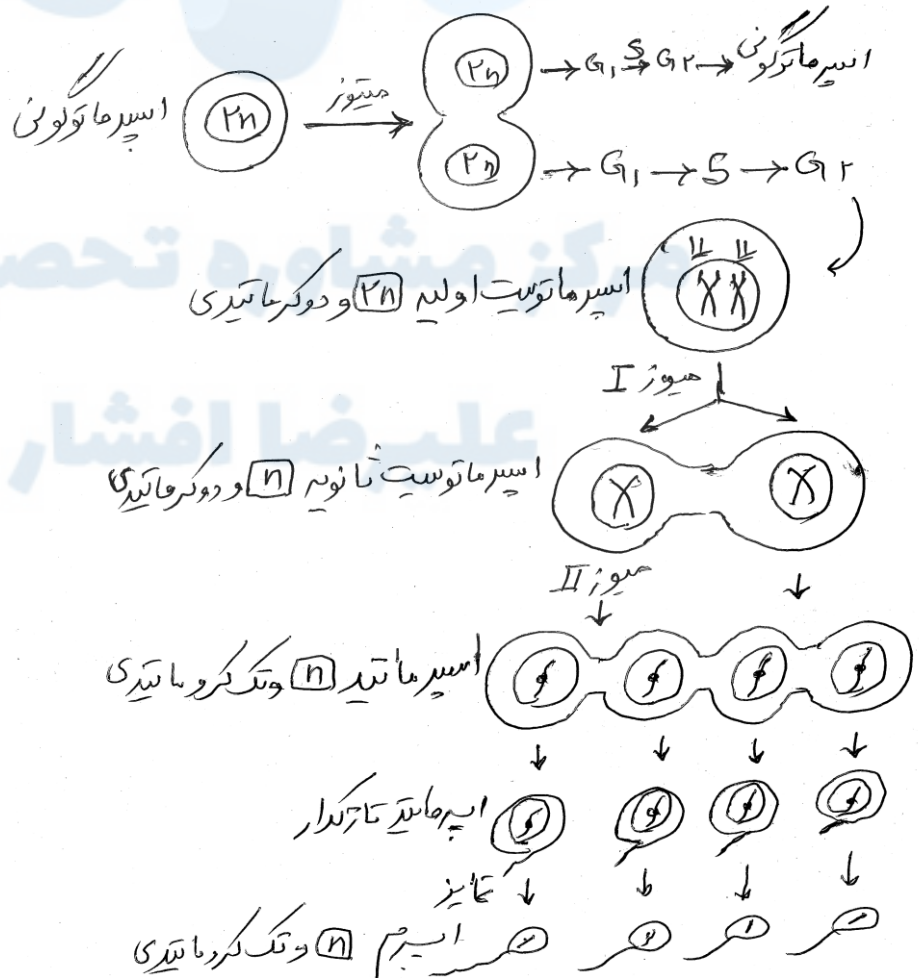 ۲n → G۱ S→ G۲ → اسپرماتوگونی
اسپرماتوگونی ۲n میتوز
۲n → G۱ → S → G۲
مرکز مشاوره تحص
اسپرماتوسیت اولیه ۲n و دوکرماتیدی
میوز I
علیرضا افشار
اسپرماتوسیت ثانویه n و دوکرماتیدی
میوز II
اسپرماتید n وتک کروماتیدی
اسپرماتید تاژکدار
تمایز
اسپرم n وتک کروماتیدی